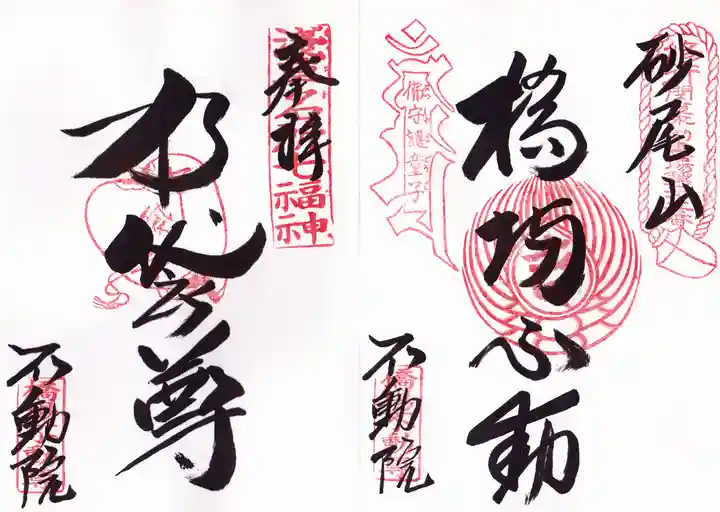 砂尾山
橋場不動
不動院
奉拝
布袋尊
不動院
福神